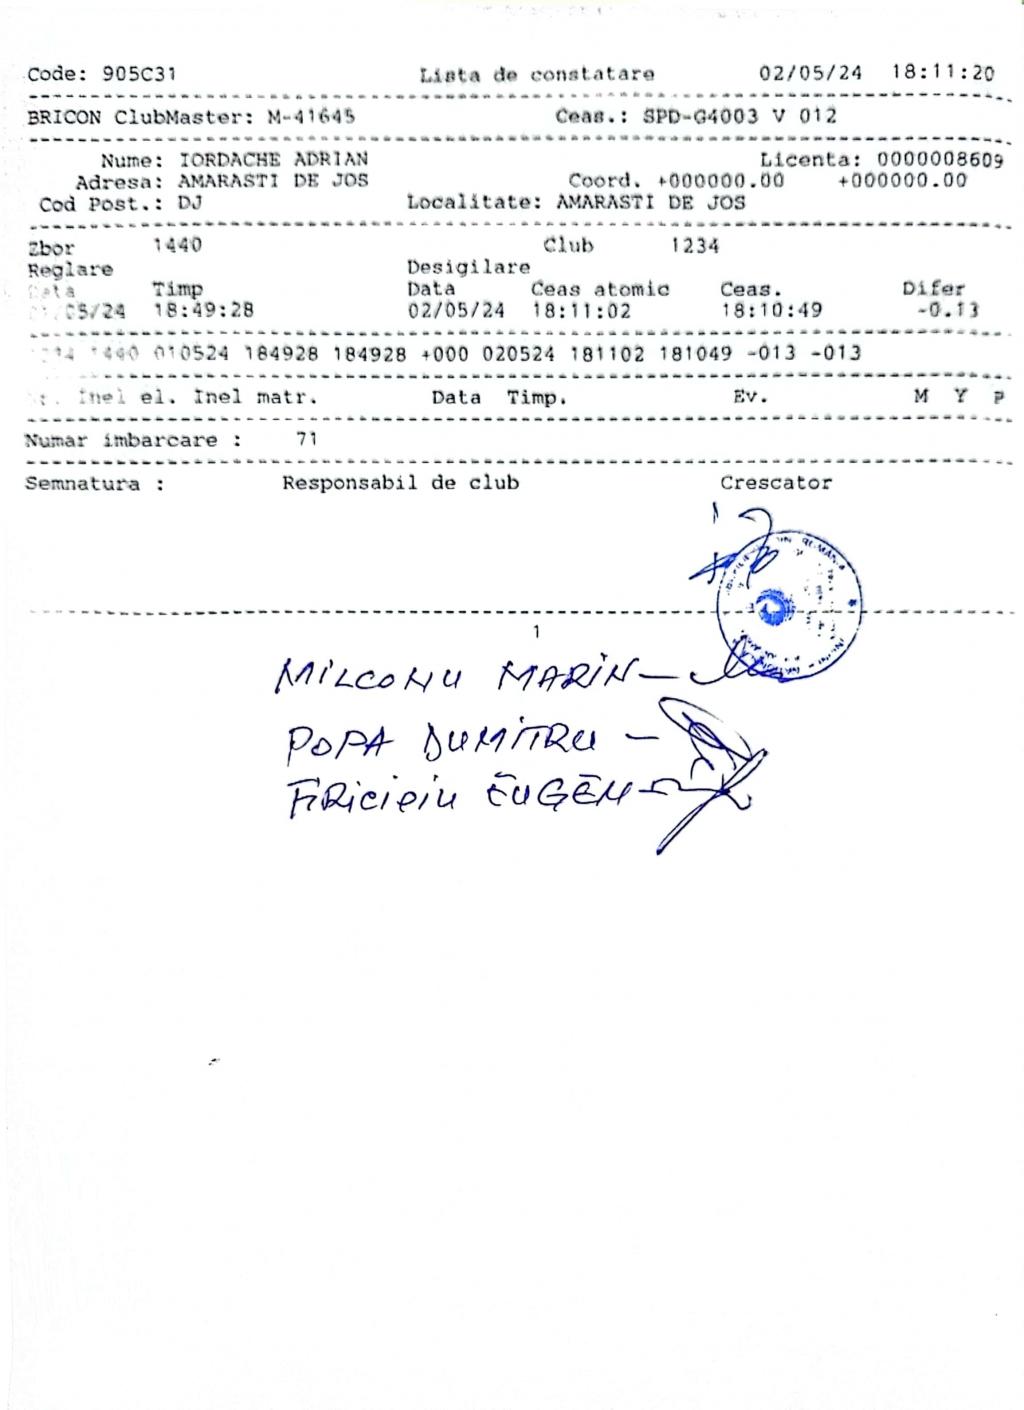 Code: 905C31 Lista de constatare 02/05/24 18:11:20
BRICON ClubMaster: M-41645 Ceas.: SPD-G4003 V 012
Nume: IORDACHE ADRIAN Licenta: 0000008609
Adresa: AMARASTI DE JOS Coord. +000000.00 +000000.00
Cod Post.: DJ Localitate: AMARASTI DE JOS
Zbor 1440 Club 1234
Reglare Desigilare
Data Timp Data Ceas atomic Ceas. Difer
01/05/24 18:49:28 02/05/24 18:11:02 18:10:49 -0.13
1234 1440 010524 184928 184928 +000 020524 181102 181049 -013 -013
Inel el. Inel matr. Data Timp. Ev. M Y P
Numar imbarcare : 71
Semnatura : Responsabil de club Crescator
ROMANIA
1
MILCONU MARIN -
POPA DUMITRU -
EUGEN -